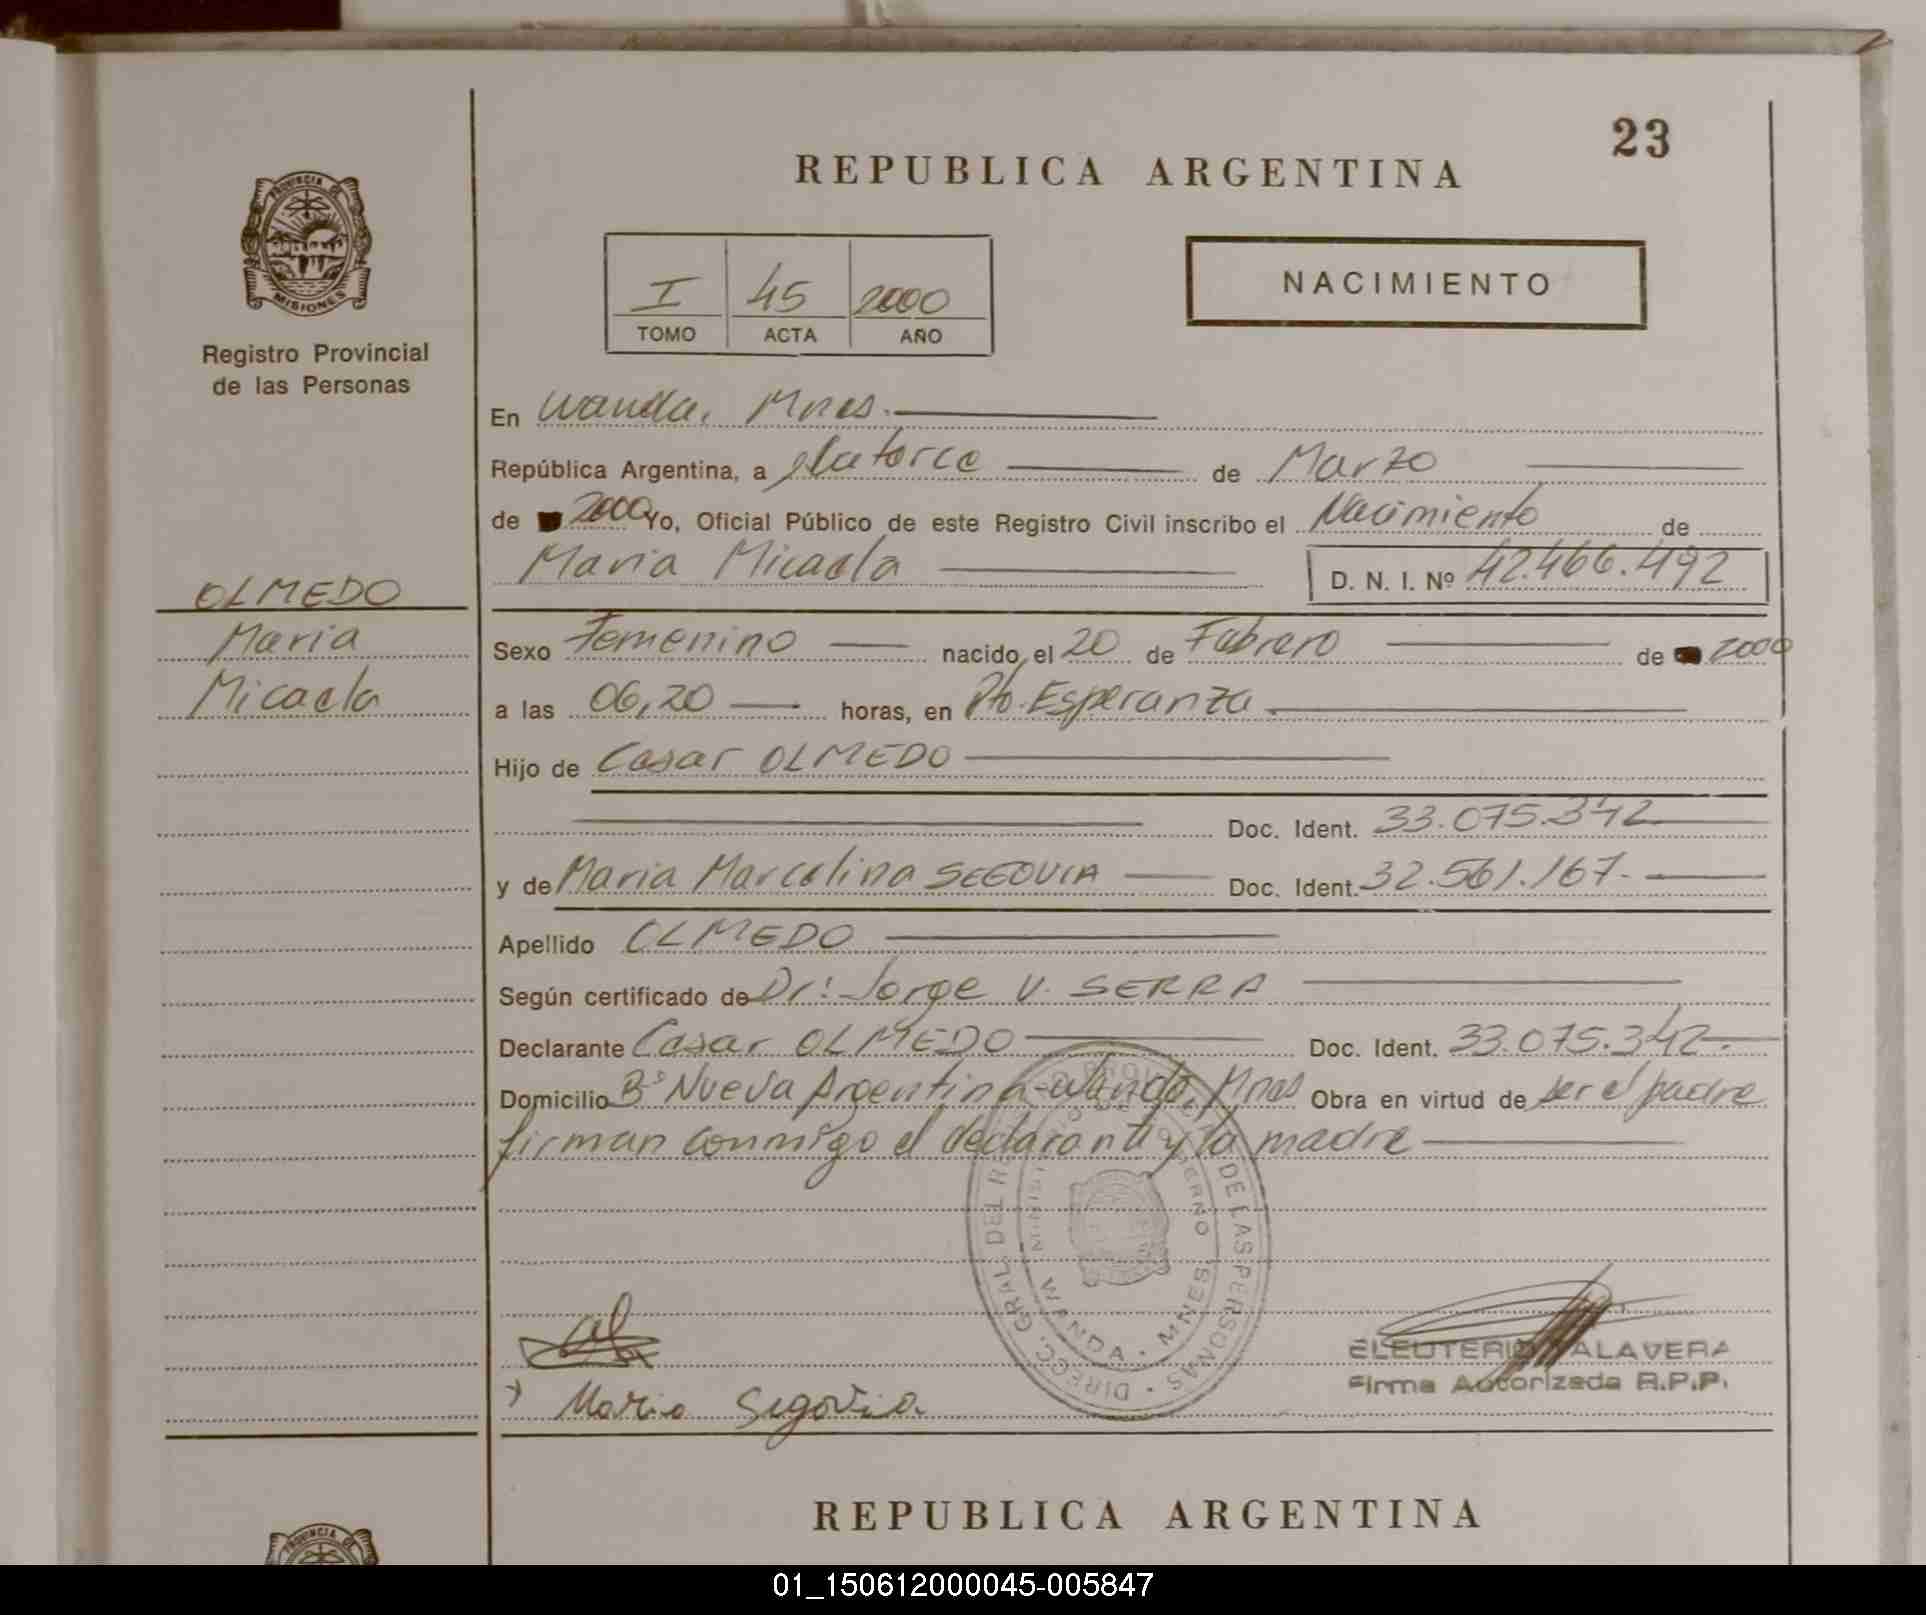 23
REPUBLICA ARGENTINA
PROVINCIA DE
MISIONES
Registro Provincial
de las Personas
I 45 2000
TOMO ACTA AÑO
NACIMIENTO
En Wanda, Mnes.
República Argentina, a Catorce de Marzo
de 2000 Yo, Oficial Público de este Registro Civil inscribo el Nacimiento de
Maria Micaela D. N. I. Nº 42.466.492
OLMEDO
Maria
Micaela
Sexo Femenino nacido el 20 de Febrero de 2000
a las 06,20 horas, en Pto. Esperanza
Hijo de Cesar OLMEDO
Doc. Ident. 33.075.342
y de Maria Marcelina SEGOVIA Doc. Ident. 32.561.167.
Apellido OLMEDO
Según certificado de Dr: Jorge V. SERRA
Declarante Cesar OLMEDO Doc. Ident. 33.075.342.
Domicilio Bº Nueva Argentina-Wanda, Mnes Obra en virtud de ser el padre
firman conmigo el declarante y la madre
DIRECC. GRAL. DEL DE LAS PERSONAS
WANDA - MNES
ELEUTERIO TALAVERA
Firma Autorizada R.P.P.
Maria Segovia
REPUBLICA ARGENTINA
PROVINCIA DE
01_150612000045-005847